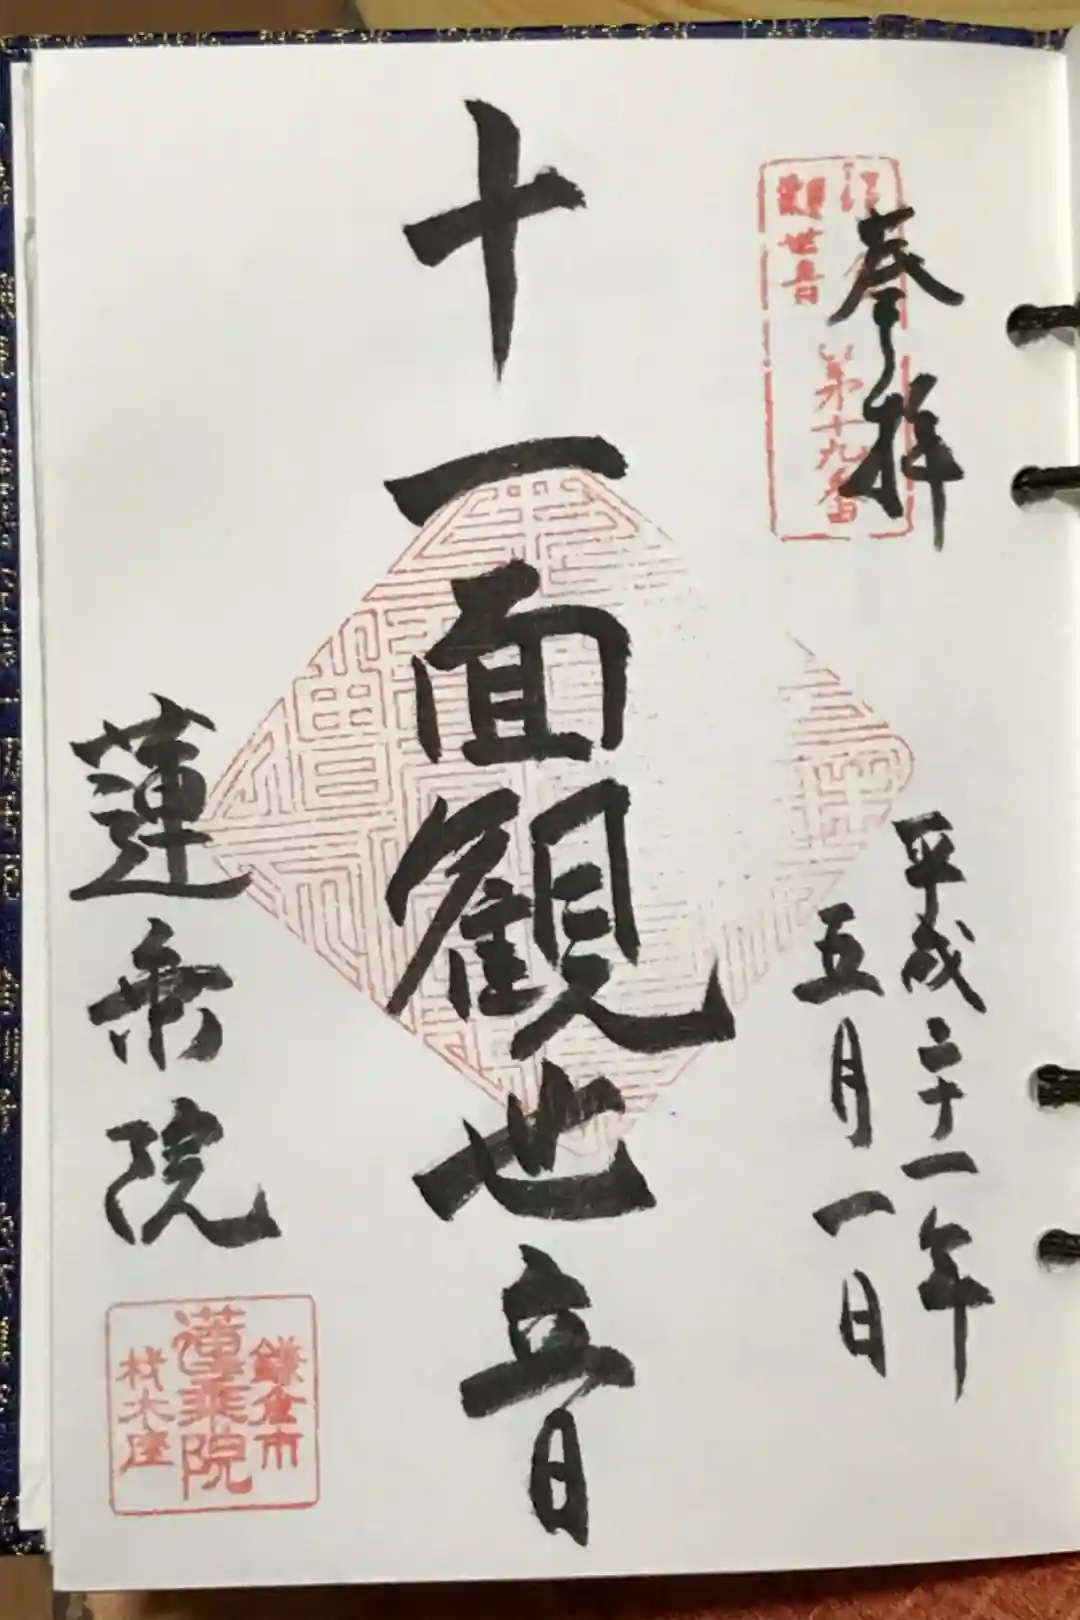 奉拝
第十九番
觀世音
平成二十一年
五月一日
十一面観世音
蓮乗院
鎌倉市
蓮乗院
材木座